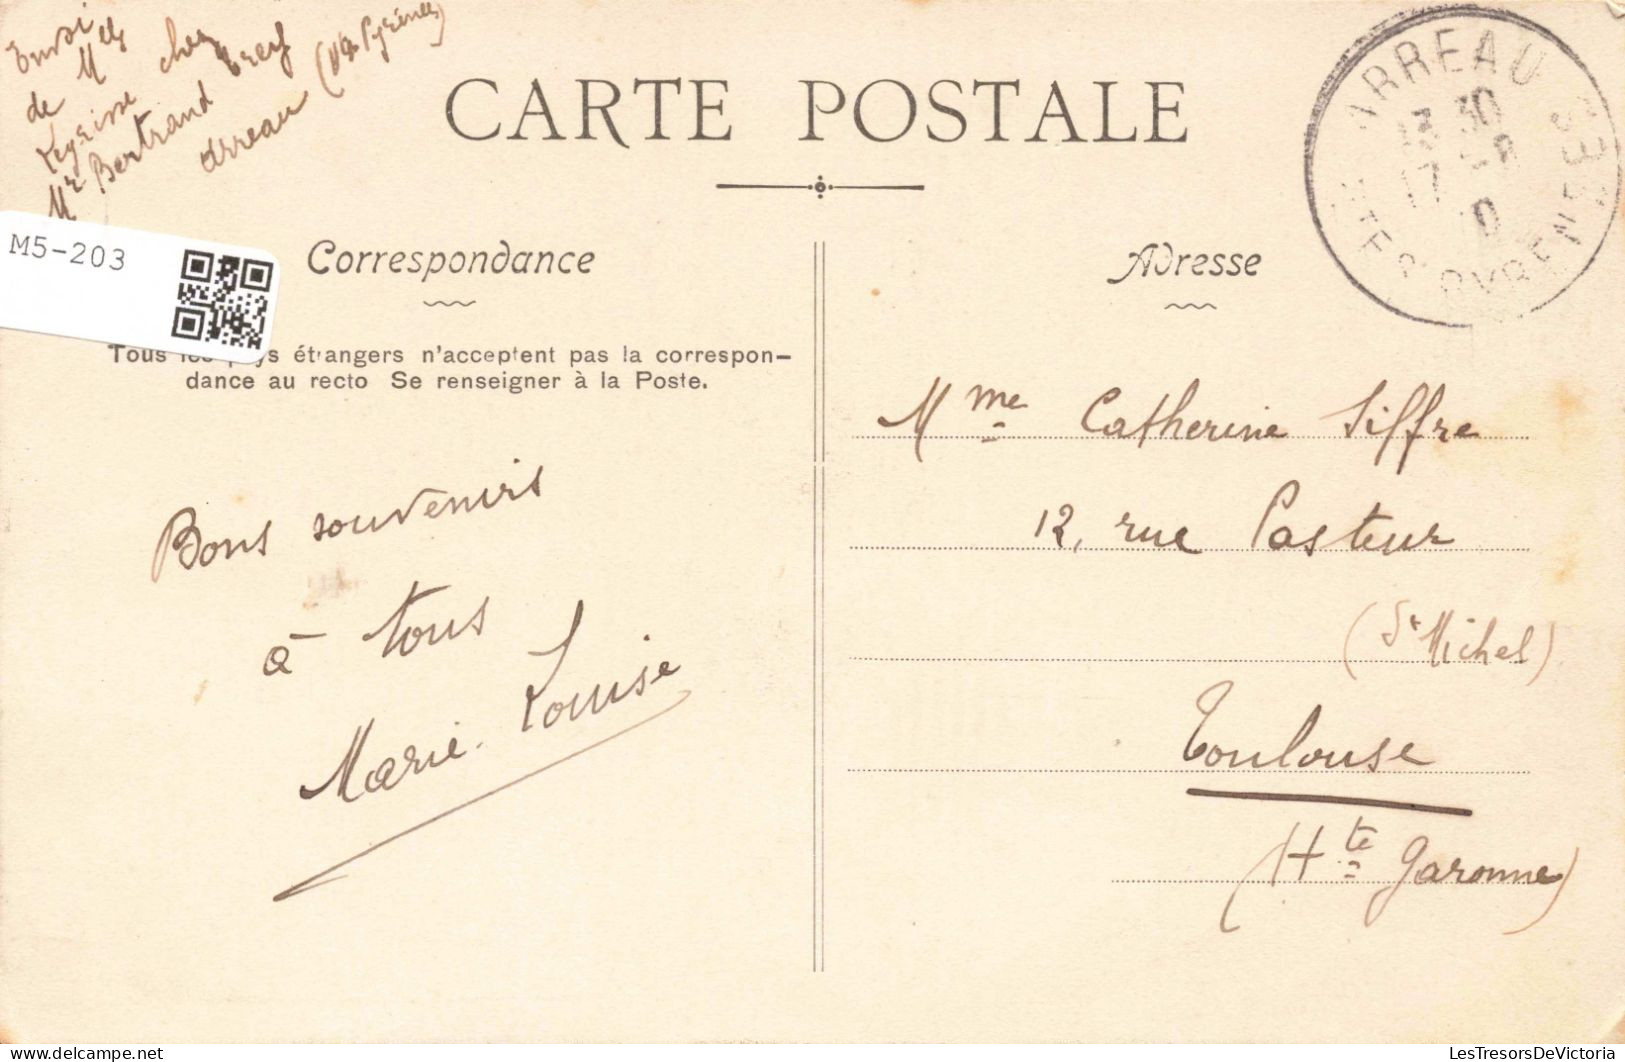 Envoi
de M^elles
chez
Mr Bertrand
Arreau (Htes Pyrénées)
CARTE POSTALE
ARREAU
13 30
17 -8
10
HTES PYRENEES
M5-203
Correspondance
Adresse
Tous les pays étrangers n'acceptent pas la correspon-
dance au recto Se renseigner à la Poste.
Bons souvenirs
à tous
Marie-Louise
Mme Catherine Siffre
12, rue Pasteur
(St Michel)
Toulouse
(Hte Garonne)
LesTresorsDeVictoria